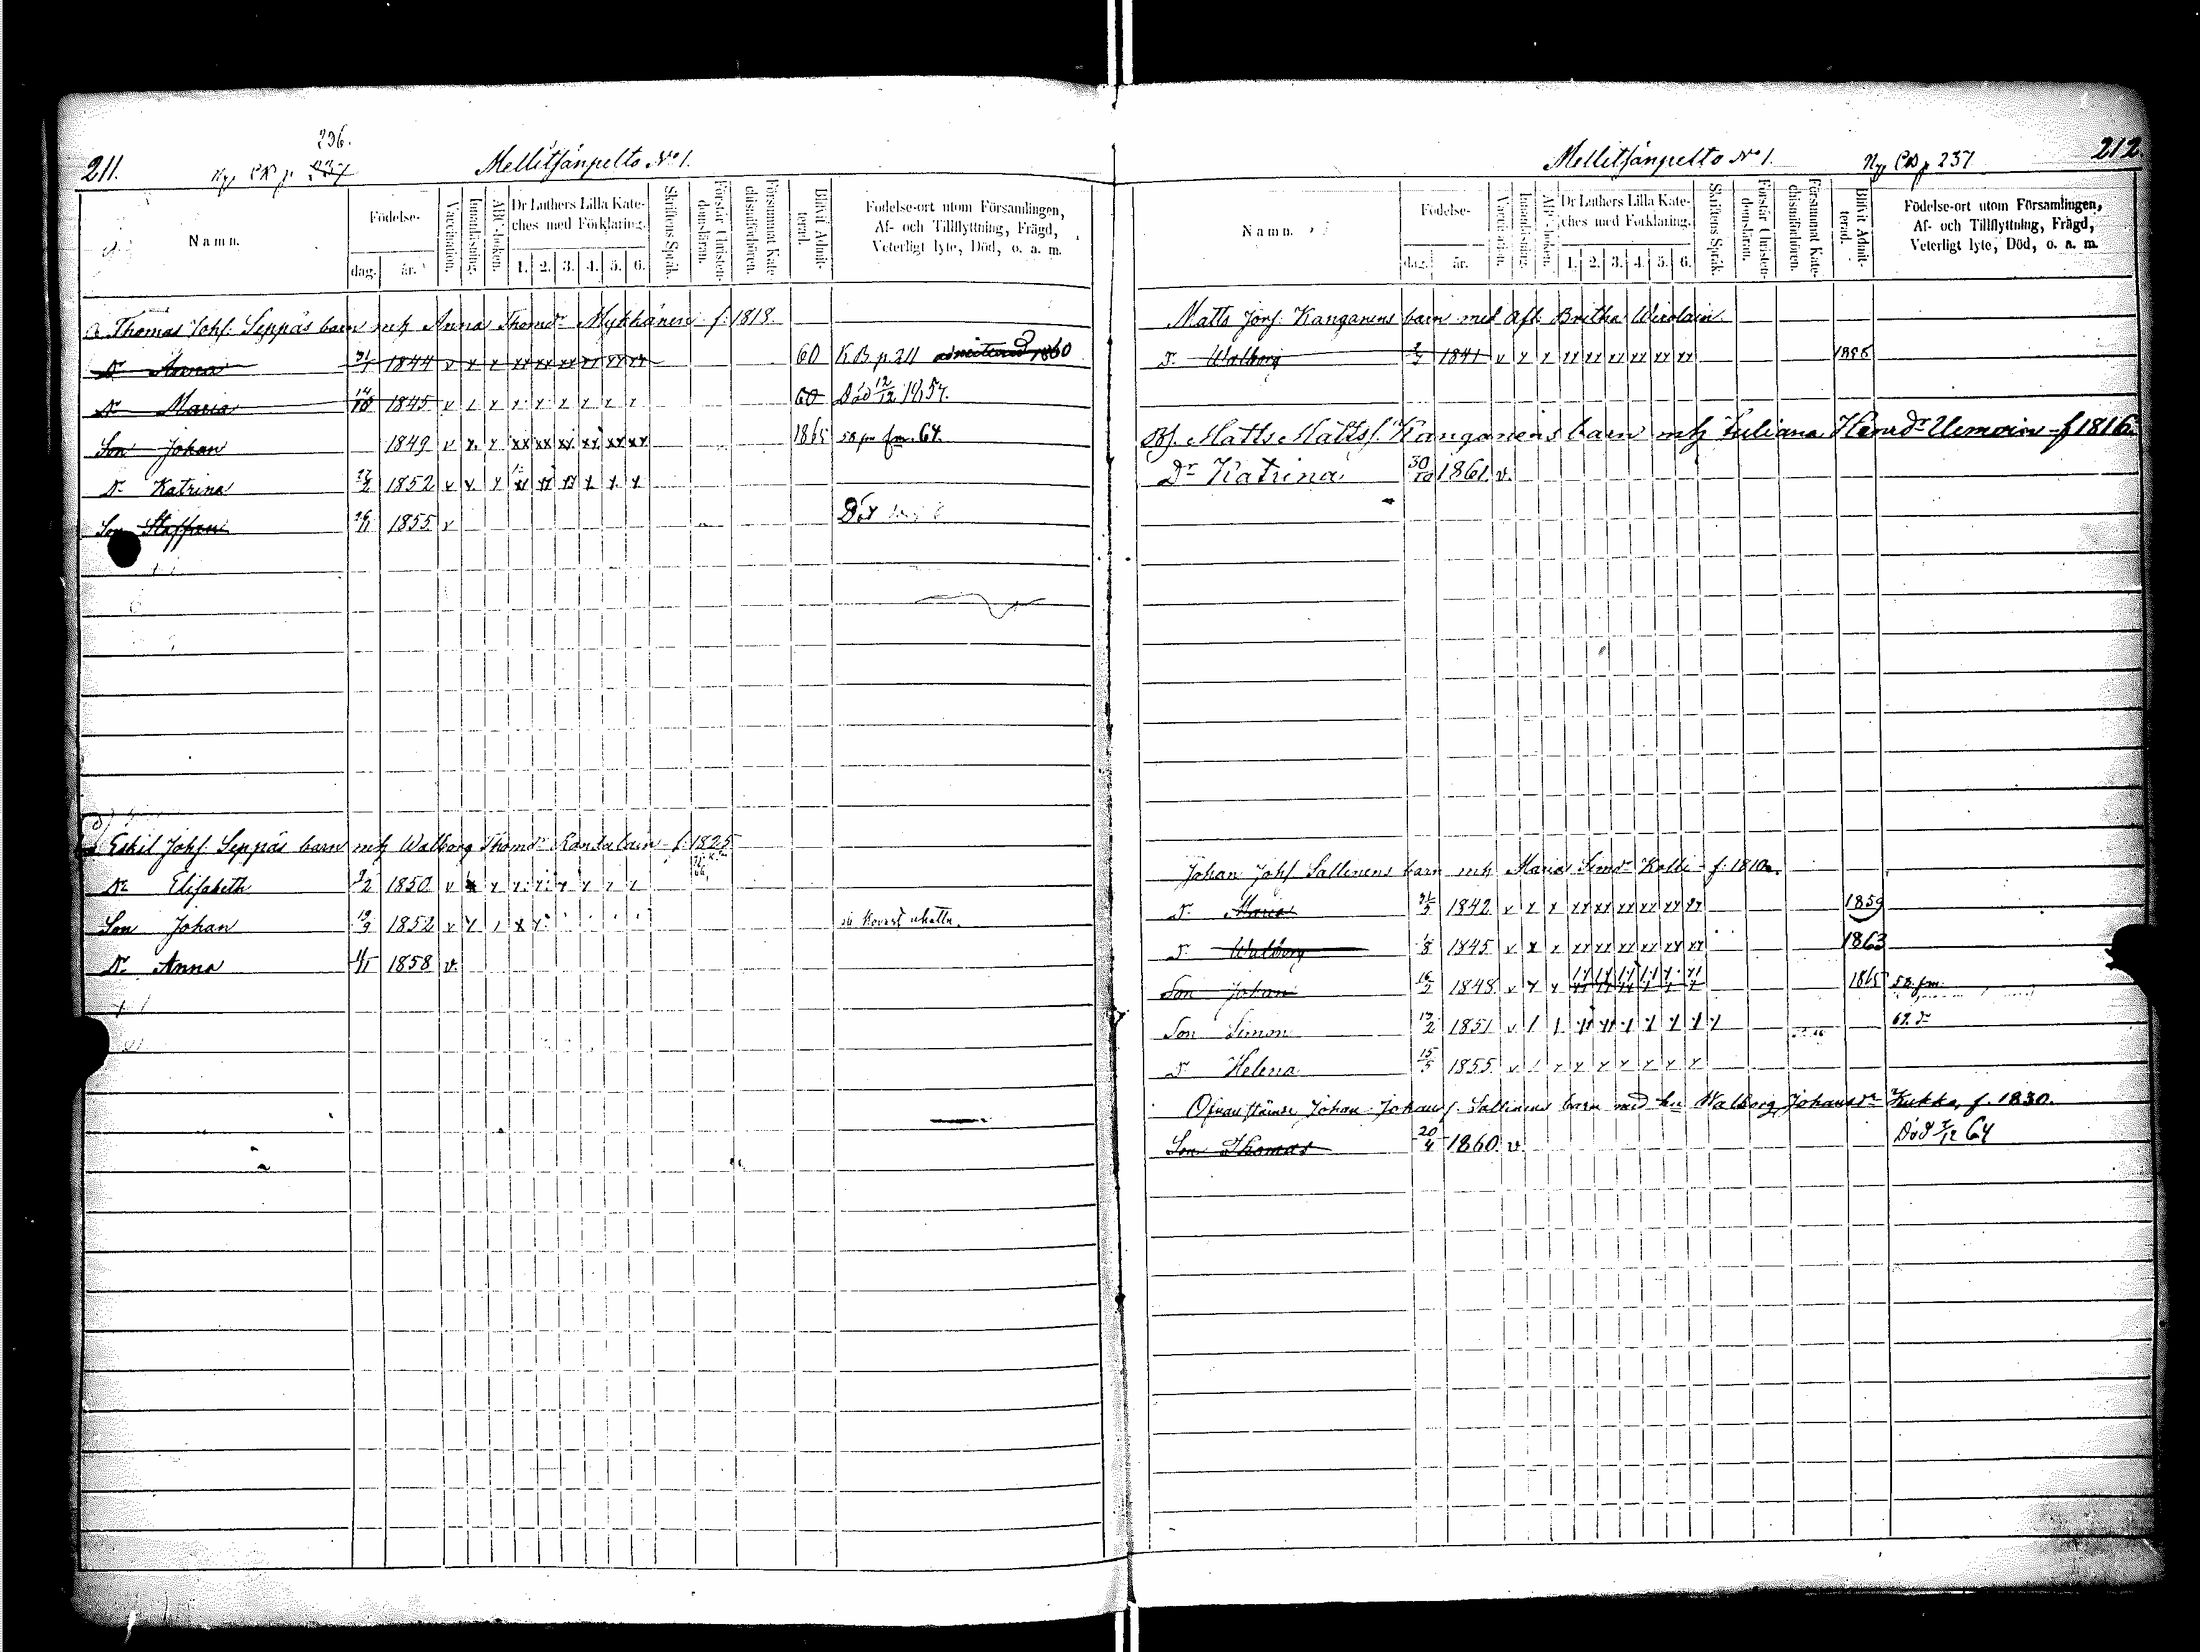 236.
211. Ny CB p. 237 Mellitsänpelto No 1.
Namn.
Födelse-
dag.
år.
Vaccination.
Innanläsning.
ABC-boken.
Dr Luthers Lilla Kate-
ches med Förklaring.
1. 2. 3. 4. 5. 6.
Skriftens Språk.
Förstår Christen-
domsläran.
Försummat Kate-
chismiförhören.
Blifvit Admit-
terad.
Födelse-ort utom Församlingen,
Af- och Tillflyttning, Frägd,
Veterligt lyte, Död, o. a. m.
Thomas Johs. Seppäs barn mh Anna Thomdr Mykkänen f. 1818.
Dr Anna 31/1 1844 v x x xx xx xx xx xx xx 60 K.B. p. 211 admitterad 1860
Dr Maria 14/10 1845 v x x x x x x x x 60 Död 12/12 57.
Son Johan 1849 v x x xx xx xx xx xx xx 1865 58 fm. 64.
Dr Katrina 17/2 1852 v x x xx xx xx x x x
Son Staffan 26/11 1855 v Död
Eskil Johs. Seppäs barn mh Walborg Thomdr Rantalain f. 1825
Dr Elisabeth 9/2 1850 v x x x x x x x x
Son Johan 19/9 1852 v x x x x
Dr Anna 11/5 1858 v.
Mellitsänpelto No 1. Ny CB p 237 212.
Namn.
Födelse-
dag.
år.
Vaccination.
Innanläsning.
ABC-boken.
Dr Luthers Lilla Kate-
ches med Förklaring.
1. 2. 3. 4. 5. 6.
Skriftens Språk.
Förstår Christen-
domsläran.
Försummat Kate-
chismiförhören.
Blifvit Admit-
terad.
Födelse-ort utom Församlingen,
Af- och Tillflyttning, Frägd,
Veterligt lyte, Död, o. a. m.
Matts Jörs. Kanganens barn med Afl. Britha Wirolain.
Dr Walborg 1841 v x x xx xx xx xx xx xx
Matts Matts s. Kanganens barn mh Juliana Henrdr Uimoin f 1816.
Dr Katrina 30/10 1861 v.
Johan Johs Sallinens barn mh Maria Simdr Kolli f. 1810.
Dr Maria 21/5 1842 v x x xx xx xx xx xx xx 1859
Dr Walborg 1/8 1845 v x x xx xx xx xx xx xx 1863
Son Johan 16/2 1848 v x x 1865 58. fm.
Son Simon 19/2 1851 v 62. dr
Dr Helena 15/5 1855 v x x x x x x x
Johan Johans s. Sallinens barn med hu Walborg Johansdr Kukko, f. 1830.
Son Thomas 20/4 1860 v Död 7/12 64